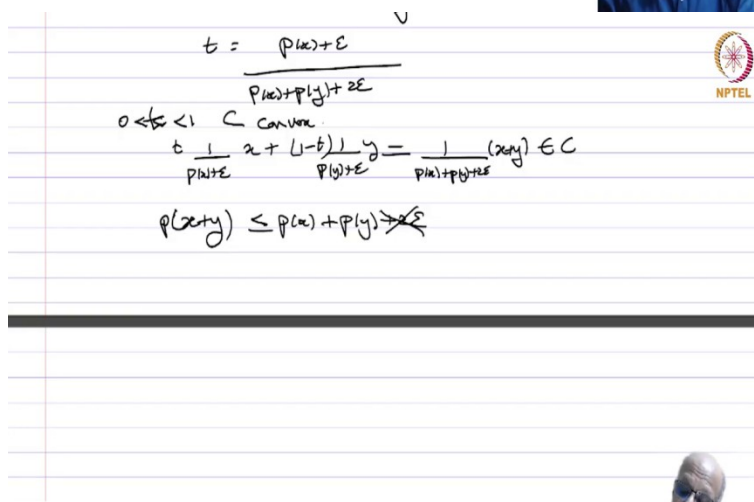 t = p(x)+ε / p(x)+p(y)+2ε
NPTEL
0 < t < 1 C convex.
t 1/p(x)+ε x + (1-t) 1/p(y)+ε y = 1/p(x)+p(y)+2ε (x+y) ∈ C
p(x+y) ≤ p(x) + p(y) +2ε